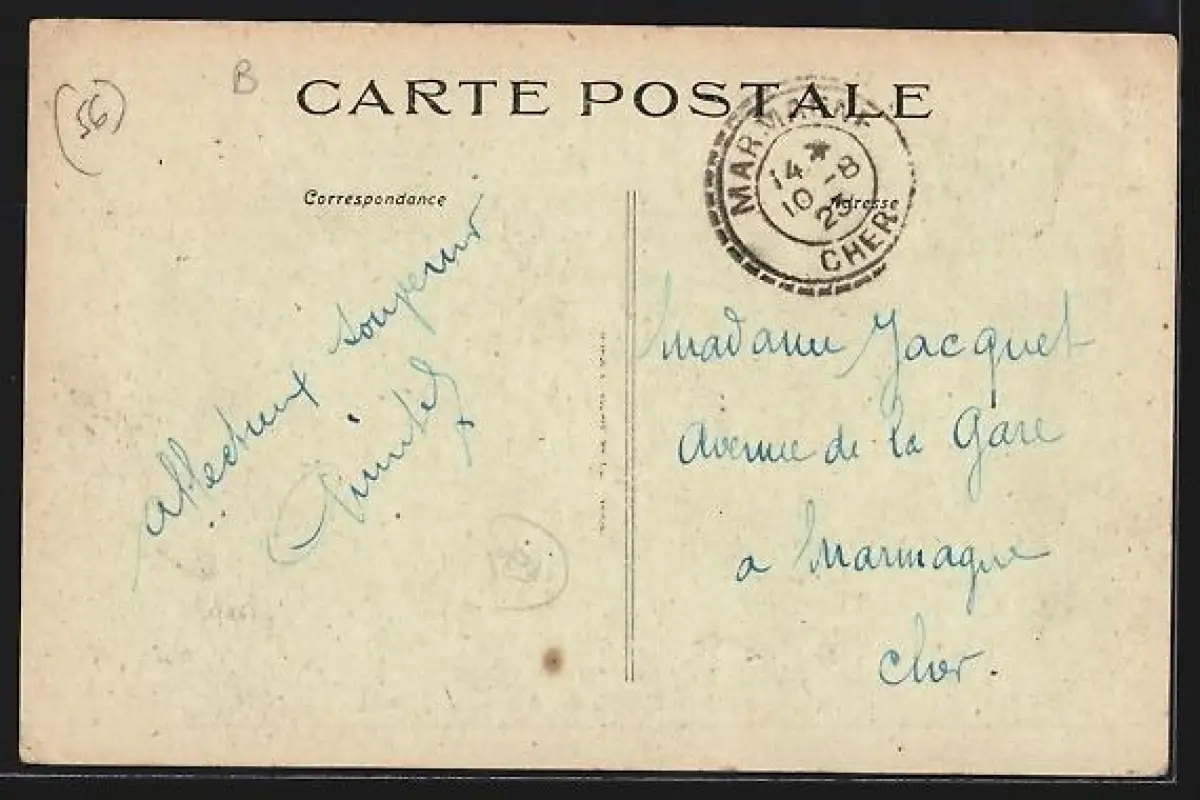 (56)
B
CARTE POSTALE
Correspondance
Adresse
MARMAGNE
14 * 
10 - 8
23
CHER
affectueux souvenir
Madame Jacquet
Avenue de la Gare
a Marmagne
Cher.